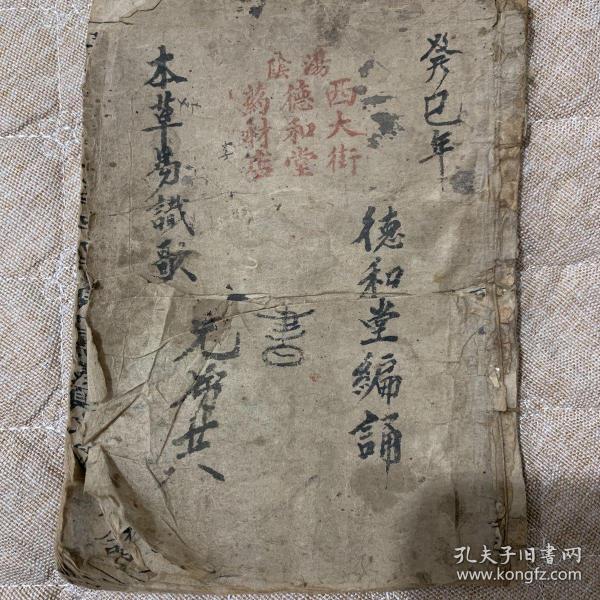 癸巳年
德和堂編誦
湯陰
西大街
德和堂
药材店
書
本草易識歌
孔夫子旧书网
www.kongfz.com